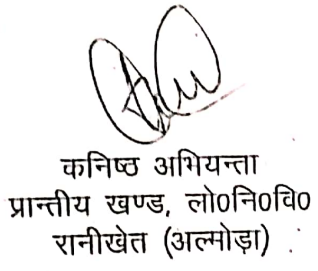 कनिष्ठ अभियन्ता
प्रान्तीय खण्ड, लो0नि0वि0
रानीखेत (अल्मोड़ा)